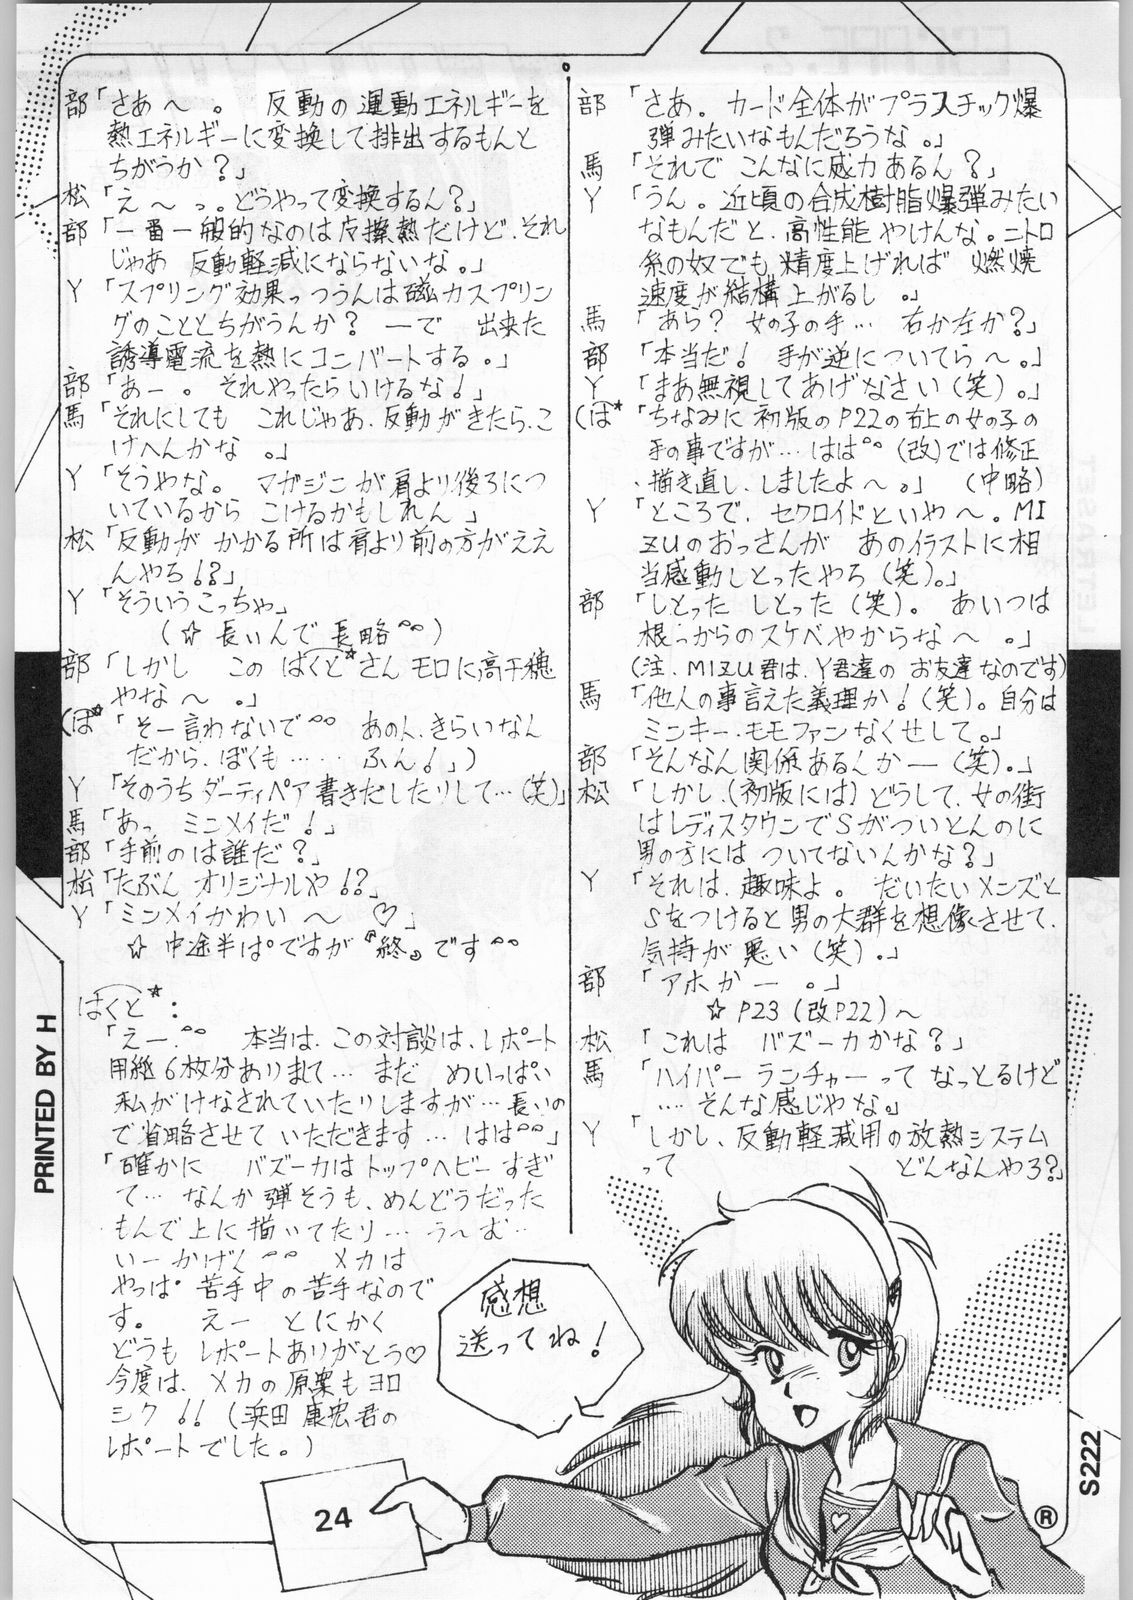 部「さあ。カード全体がプラスチック爆
弾みたいなもんだろうな。」
馬「それで こんなに威力あるん?」
Y「うん。近頃の合成樹脂爆弾みたい
なもんだと、高性能やけんな。ニトロ
系の奴でも 精度上げれば 燃焼
速度が結構上がるし 。」
馬「あら? 女の子の手… 右か左か?」
部「本当だ! 手が逆についてら〜。」
Y「まあ無視してあげなさい(笑)。」
(ぱ*「ちなみに 初版のP22の右上の女の子の
手の事ですが… はは°° (改)では修正
、描き直し、しましたよ〜。」 (中略)
Y「ところで、セクロイドといや〜。MI
ZUのおっさんが あのイラストに相
当感動しとったやろ(笑)。」
部「しとった しとった(笑)。 あいつは
根っからのスケベやからな〜 。」
(注、MIZU君は、Y君達の お友達なのです)
馬「他人の事言えた義理か!(笑)。自分は
ミンキー・モモファンなくせして。」
部「そんなん関係あるんかー(笑)。」
松「しかし、(初版には)どうして、女の街
はレディスタウンでSがついとんのに
男の方には ついてないんかな?」
Y「それは、趣味よ。 だいたいメンズと
Sをつけると男の大群を想像させて、
気持が悪い(笑)。」
部「アホかー 。」
☆ P23(改P22)〜
松「これは バズーカかな?」
馬「ハイパーランチャーって なっとるけど
…. そんな感じやな。」
Y「しかし、反動軽減用の放熱システム
って どんなんやろ?」
部「さあ〜。 反動の運動エネルギーを
熱エネルギーに変換して排出するもんと
ちがうか?」
松「え〜っ。どうやって変換するん?」
部「一番一般的なのは摩擦熱だけど、それ
じゃあ 反動軽減にならないな。」
Y「スプリング効果っつうんは磁力スプリン
グのこととちがうんか? ーで 出来た
誘導電流を熱にコンバートする。」
部「あー。 それやったらいけるな!」
馬「それにしても これじゃあ、反動がきたら、こ
けへんかな 。」
Y「そうやな。 マガジンが肩より後ろにつ
いているから こけるかもしれん」
松「反動が かかる所は肩より前の方がええ
んやろ!?」
Y「そういうこっちゃ」
(☆ 長いんで 長略°°)
部「しかし この ぱくと*さん モロに高千穂
やな〜 。」
(ぱ*「そー言わないで°° あの人、きらいなん
だから、ぼくも…… ふん!」)
Y「そのうちダーティペア書きだしたりして…(笑)」
馬「あっ ミンメイだ!」
部「手前のは誰だ?」
松「たぶん オリジナルや!?」
Y「ミンメイかわい〜 ♡」
☆ 中途半ぱですが『終』です°°
ぱくと*:
「えー、°° 本当は、この対談は、レポート
用紙6枚分ありまして… まだ めいっぱい
私がけなされていたりしますが… 長いの
で省略させて いただきます… はは°°」
「確かに バズーカはトップヘビーすぎ
て… なんか弾そうも、めんどうだった
もんで上に描いてたり… う〜む…
いーかげん°° メカは
やっぱ苦手中の苦手なので
す。 えー とにかく
どうも レポートありがとう♡
今度は、メカの原案もヨロ
シク!!(浜田 康宏君の
レポートでした。)
感想
送ってね!
24
PRINTED BY H
S222
®